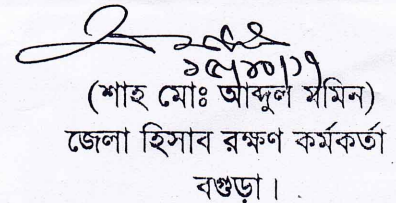 (শাহ মোঃ আব্দুল মমিন)
জেলা হিসাব রক্ষণ কর্মকর্তা
বগুড়া।